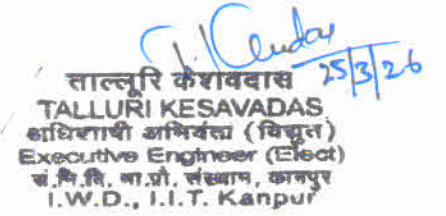 25/3/26
ताल्लूरि केशवदास
TALLURI KESAVADAS
अधिशाषी अभियंता (विद्युत)
Executive Engineer (Elect)
सं.नि.वि, भा.प्रौ. संस्थान, कानपुर
I.W.D., I.I.T. Kanpur